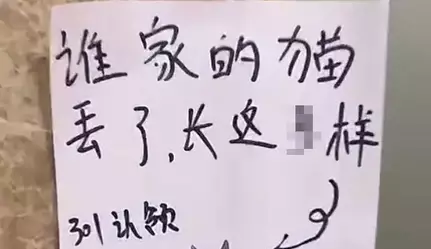 谁家的猫
丢了,长这样
301认领